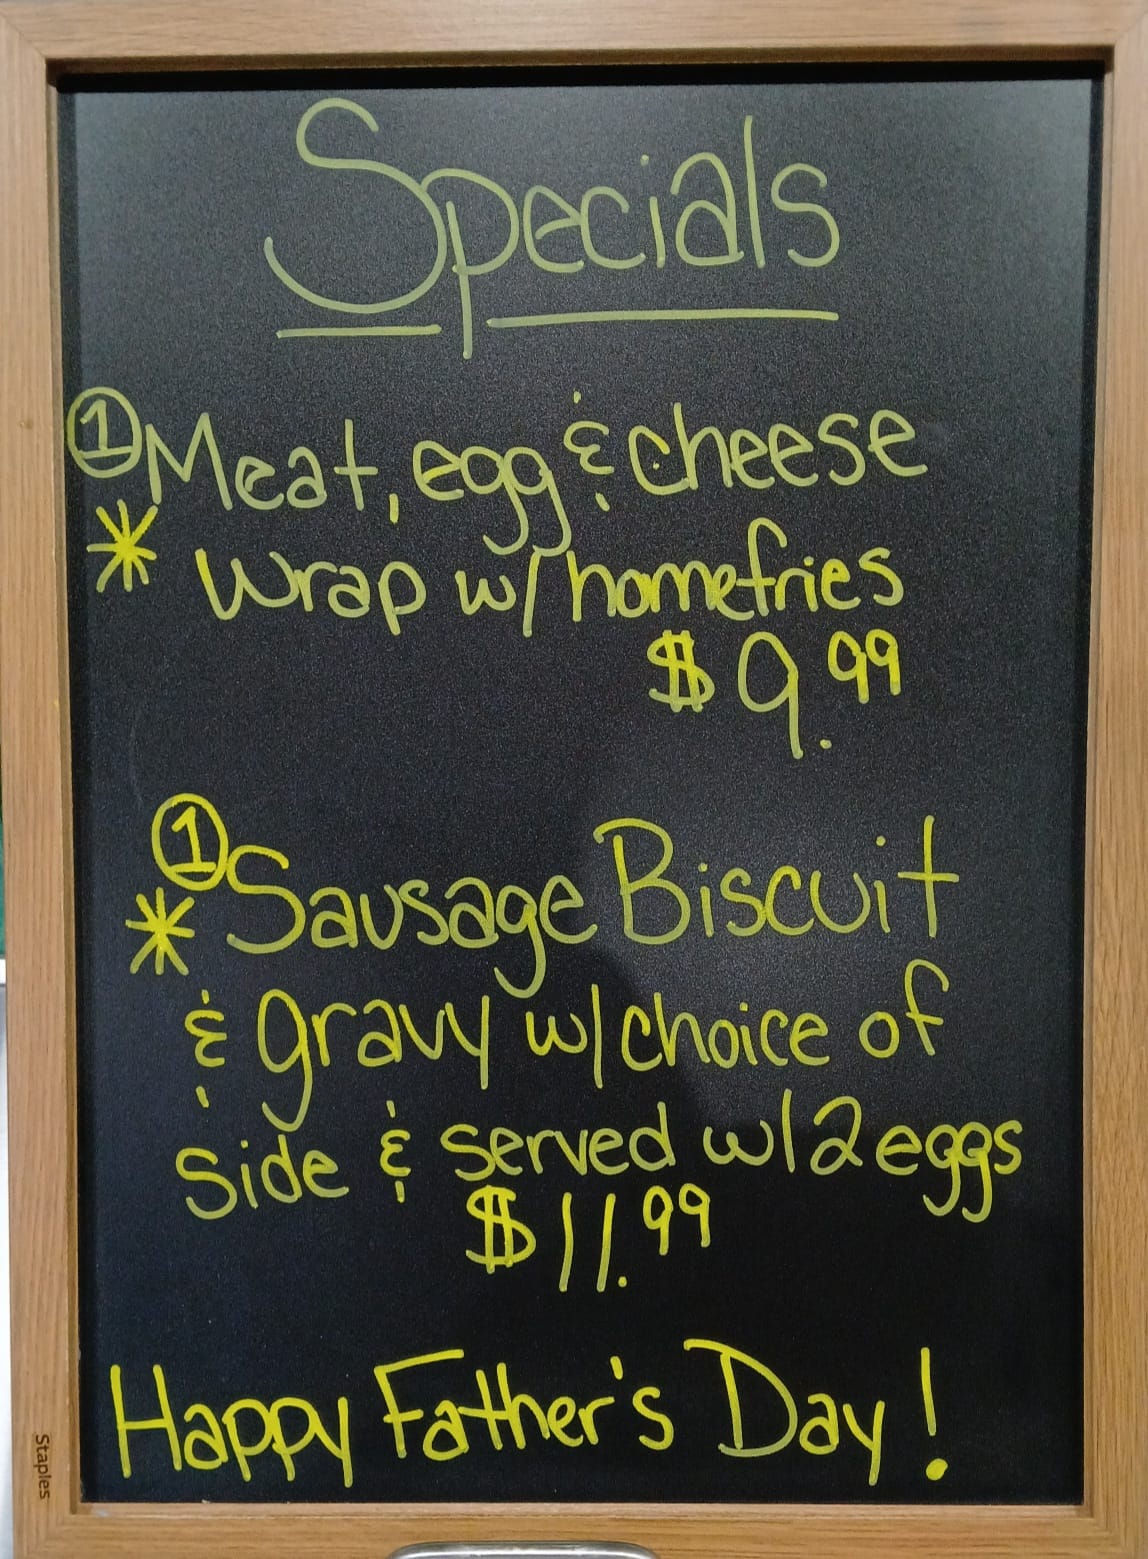 Specials
① Meat, egg & cheese
* Wrap w/ homefries
$9.99
① Sausage Biscuit
* & gravy w/ choice of
side & served w/ 2 eggs
$11.99
Happy Father's Day!
Staples